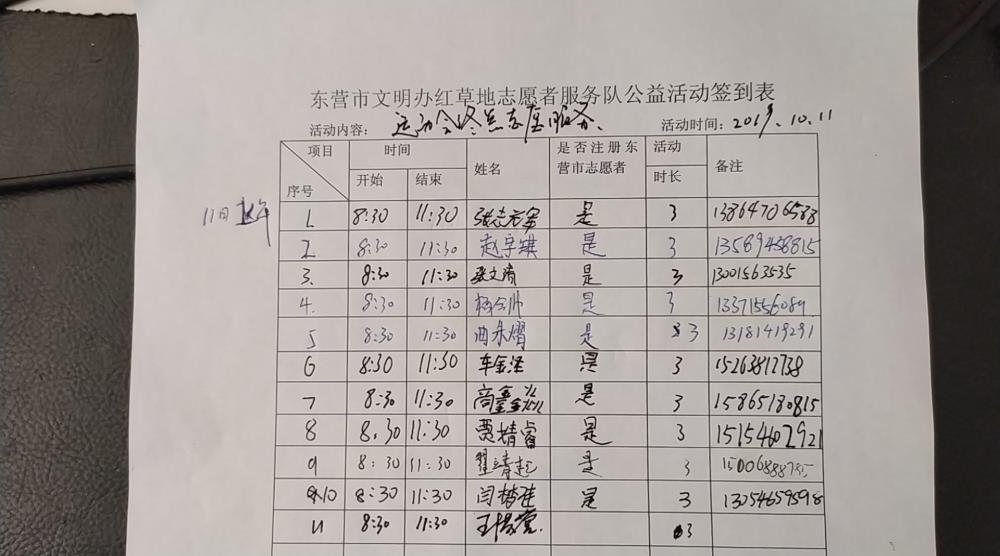 东营市文明办红草地志愿者服务队公益活动签到表
活动内容： 运动会终点志愿服务、 活动时间：2019.10.11
项目 时间 姓名 是否注册东营市志愿者 活动时长 备注
序号 开始 结束
11日上午
1 8:30 11:30 张志 是 3 13864706588
2 8:30 11:30 赵宇 是 3 13589458815
3. 8:30 11:30 张文清 是 3 13001563535
4. 8:30 11:30 杨会帅 是 3 13371556089
5 8:30 11:30 曲永熠 是 3 13181419291
6 8:30 11:30 车金泽 是 3 15263812738
7 8:30 11:30 高鑫 是 3 15865180815
8 8:30 11:30 贾精睿 是 3 15154602921
9 8:30 11:30 翟靖起 是 3 15006888735
10 8:30 11:30 闫梅 是 3 13054659598
11 8:30 11:30 王 3